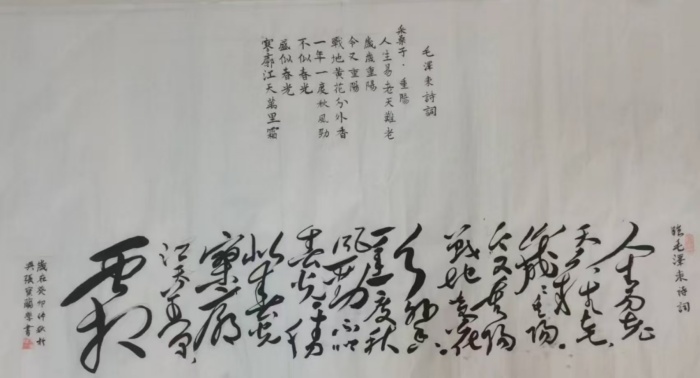 毛澤東詩詞
采桑子·重陽
人生易老天難老
歲歲重陽
今又重陽
戰地黃花分外香
一年一度秋風勁
不似春光
勝似春光
寥廓江天萬里霜
臨毛澤東詩詞
人生易老
天難老
歲歲重陽
今又重陽
戰地黃花
分外香
一年一度秋
風勁不似
春光勝
似春光
寥廓
江天萬里
霜
歲在癸卯仲秋
張寶蘭學書